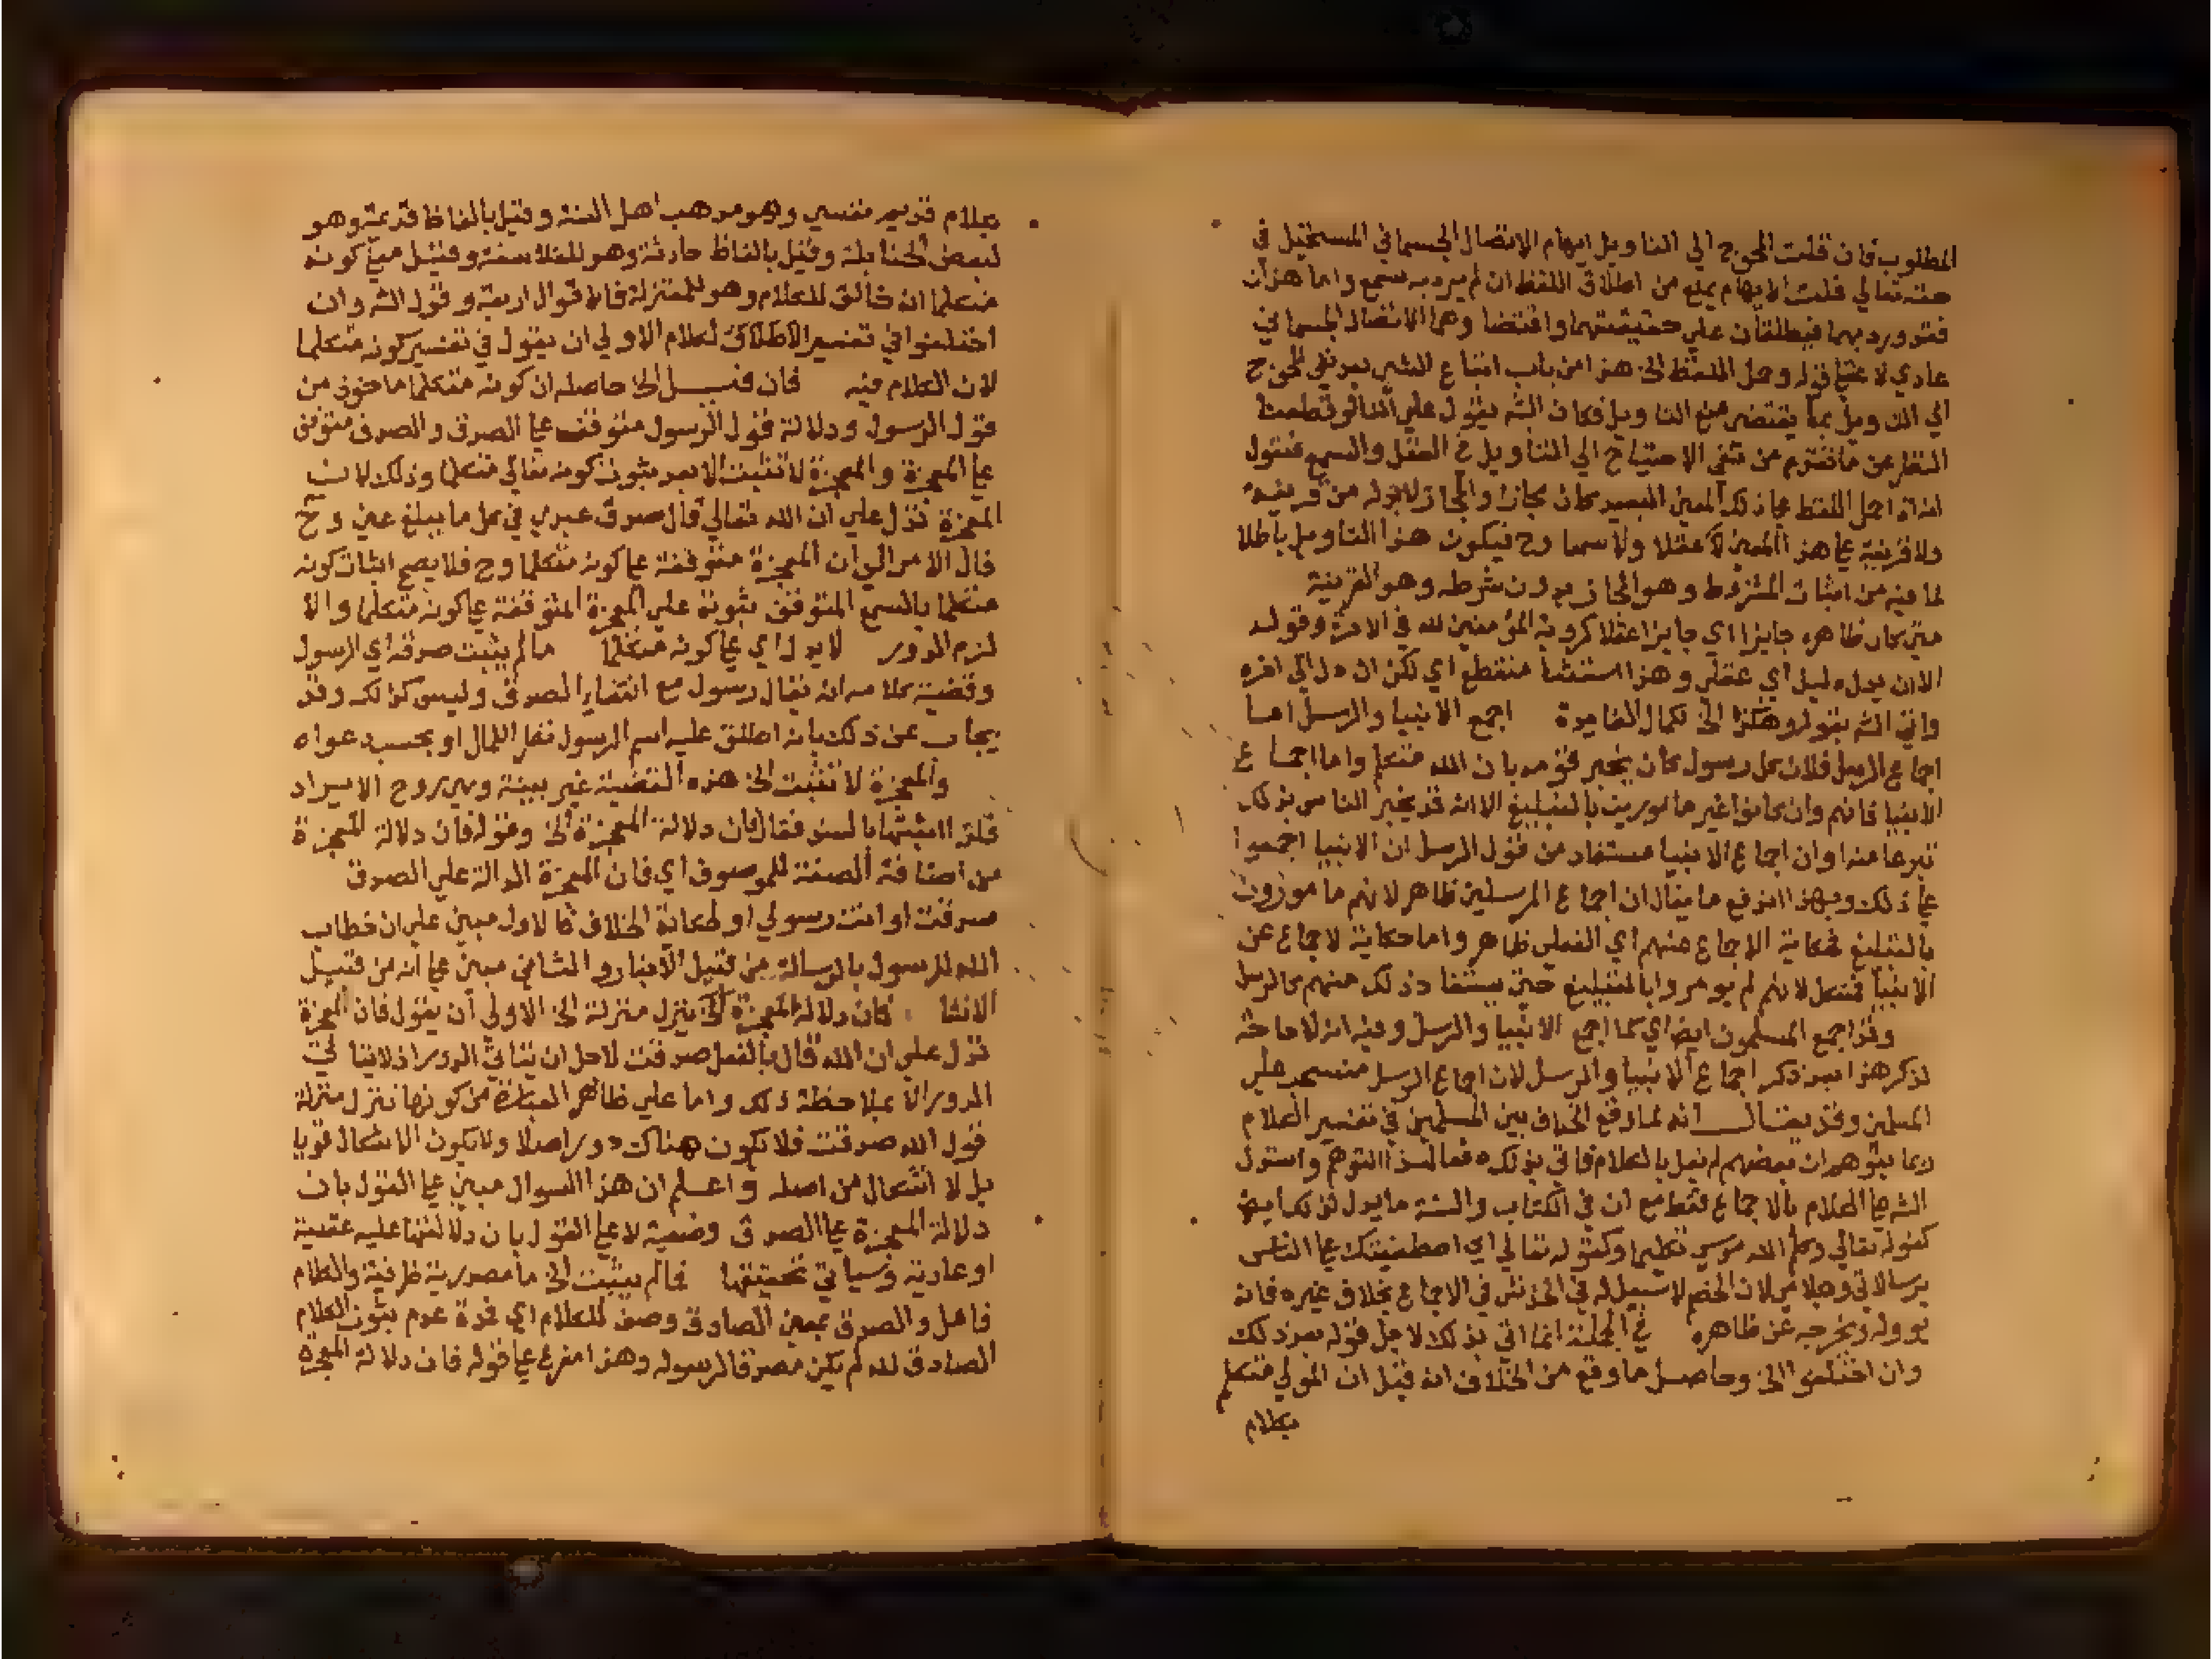 المطلوب فان قلت المحوج الي التاويل ايهام الاتصال الجسماني المستحيل في
حقه تعالي قلت الايهام يمنع من اطلاق اللفظ ان لم يرد به سمع واما هذان
فقد ورد بهما فيطلقان علي حقيقتهما واقتضا وهما الاتصال الجسماني
عادي لا عقلي قوله وحمل اللفظ الخ هذا من باب اتباع الشي بعد نفي المحوج
الي التاويل بما يقتضي منع التاويل فكان الشه يقول علي اننا لو قطعنا
النظر عن ما تقدم من نفي الاحتياج الي التاويل في العقل والسمع فنقول
انه اذا حمل اللفظ علي ذلك المعني البعيد كان مجازا والمجاز لا بد له من قرينة
ولا قرينة علي هذا المعني لا عقلا ولا سمعا وح فيكون هذا التاويل باطلا
لما فيه من اثبات المشروط وهو المجاز بدون شرطه وهو القرينة
متي كان ظاهره جايزا اي جايزا عقلا كروية المؤمنين لله في الاخرة وقوله
الا ان يدل دليل اي عقلي وهذا استثنا منقطع اي لكن ان دل الي اخره
واتي الشه بقوله وهكذا الخ لكمال الفايدة اجمع الانبيا والرسل اما
اجماع الرسل فلان كل رسول كان يخبر قومه بان الله متكلم واما اجماع
الانبيا فانهم وان كانوا غير مامورين بالتبليغ الا انه قد يخبر الناس بذلك
تبرعا منه او ان اجماع الانبيا مستفاد من قول الرسل ان الانبيا اجمعوا
علي ذلك وبهذا اندفع ما يقال ان اجماع المرسلين ظاهر لانهم مامورون
بالتبليغ فحكاية الاجماع عنهم اي الفعلي ظاهر واما حكاية الاجماع عن
الانبيا فمشكل لانهم لم يومروا بالتبليغ حتي يستفاد ذلك منهم كالرسل
وقد اجمع المسلمون ايضا اي كما اجمع الانبيا والرسل وفيه انه لا حاجة
لذكر هذا بعد ذكر اجماع الانبيا والرسل لان اجماع الرسل منسحب علي
المسلمين وقد يقال انه لما وقع الخلاف بين المسلمين في تفسير الكلام
ربما يتوهم ان بعضهم لم يقل بالكلام فاتي بذلك دفعا لهذا التوهم واستدل
الشه علي الكلام بالاجماع فقط مع ان في الكتاب والسنة ما يدل لذلك ايضا
كقوله تعالي وكلم الله موسي تكليما وكقوله تعالي اي اصطفيتك علي الناس
برسالاتي وبكلامي لان الخصم لا سبيل له في الخدش في الاجماع بخلاف غيره فانه
يووله ويخرجه عن ظاهره في الجملة انما اتي بذلك لاجل قوله بعد ذلك
وان اختلفوا الخ وحاصل ما وقع من الخلاف انه قيل ان المولي متكلم
بكلام
بكلام قديم نفسي وهو مذهب اهل السنة وقيل بالفاظ قديمة وهو
لبعض الحنابلة وقيل بالفاظ حادثة وهو للفلاسفة وقيل معني كونه
متكلما انه خالق للكلام وهو للمعتزلة فالاقوال اربعة وقول الشه وان
اختلفوا في تفسير الاطلاق لكلام الاولي ان يقول في تفسير كونه متكلما
لان الكلام فيه فان قيل الخ حاصله ان كونه متكلما ماخوذ من
قول الرسول ودلالة قول الرسول متوقفة علي الصدق والصدق متوقف
علي المعجزة والمعجزة لا تثبت الا بعد ثبوت كونه تعالي متكلما وذلك لان
المعجزة تدل علي ان الله تعالي قال صدق عبدي في كل ما يبلغ عني وح
فال الامر الي ان المعجزة متوقفة علي كونه متكلما وح فلا يصح اثبات كونه
متكلما بالسمع المتوقف ثبوته علي المعجزة المتوقفة علي كونه متكلما والا
لزم الدور لا يدل اي علي كونه متكلما ما لم يثبت صدقه اي الرسول
وقضية كلامه انه يقال رسول مع انتفاء الصدق وليس كذلك وقد
يجاب عن ذلك بانه اطلق عليه اسم الرسول نظرا للمال او بحسب دعواه
والمعجزة لا تثبت الخ هذه القضية غير بينة وهي روح الايراد
فلذا اثبتها بالسند فقال فان دلالة المعجزة الخ وقوله فان دلالة المعجزة
من اضافة الصفة للموصوف اي فان المعجزة الدالة علي الصدق
صدقت او انت رسولي او لحكاية الخلاف فالاول مبني علي ان خطاب
الله للرسول بالرسالة من قبيل الاخبار والثاني مبني علي انه من قبيل
الانشا فان دلالة المعجزة الخ تنزل منزلة الخ الاولي ان يقول فان المعجزة
تدل علي ان الله قال بالفعل صدقت لاجل ان يتاتي الدور اذ لا يتاتي
الدور الا بملاحظة ذلك واما علي ظاهر العبارة من كونها تنزل منزلة
قول الله صدقت فلا يكون هناك دور اصلا ولا يكون الاشكال قويا
بل لا اشكال من اصله واعلم ان هذا السوال مبني علي القول بان
دلالة المعجزة علي الصدق وضعية لا علي القول بان دلالتها عليه عقلية
او عادية وسياتي تحقيقها فما لم يثبت الخ ما مصدرية ظرفية والكلام
فاعل والصدق بمعني الصادق وصف للكلام اي فمدة عدم ثبوت الكلام
الصادق لله لم يكن مصدقا لرسوله وهذا مفرع علي قوله فان دلالة المعجزة